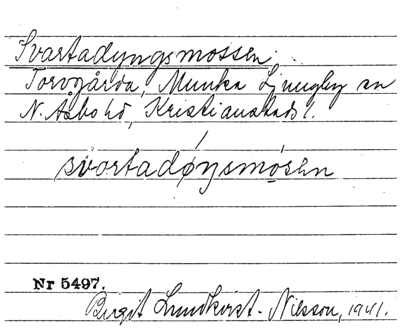 Svartadyngsmossen.
Torvgårda, Munka Ljungby sn
N. Åsbo hd, Kristianstads l.
svortadøysmósen
Nr 5497.
Birgit Lundkvist-Nilsson, 1941.